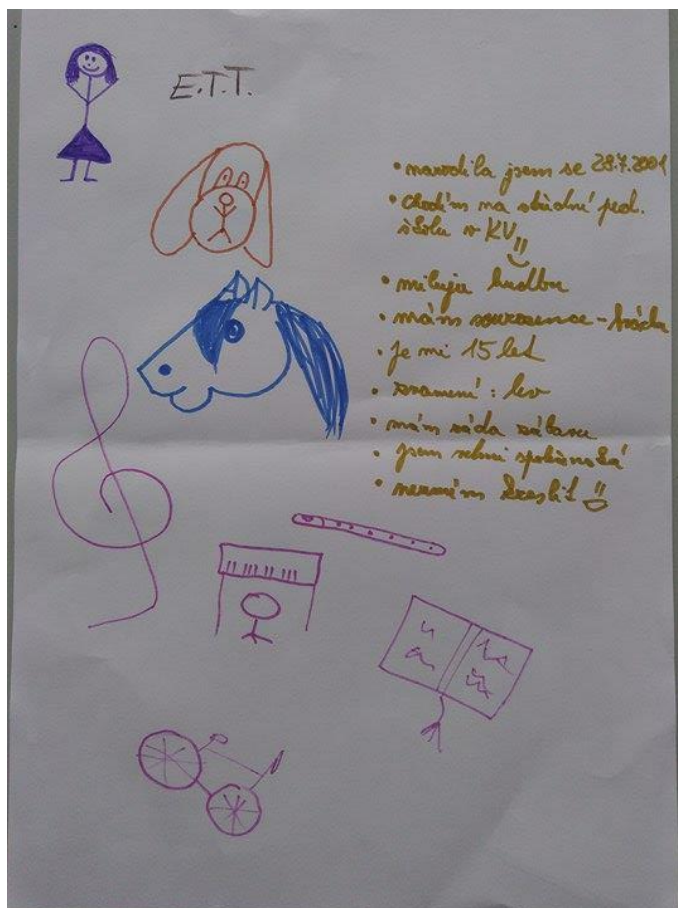 E.T.T.
• narodila jsem se 28.7.2001
• Chodím na střední ped.
školu v KV
• miluju hudbu
• mám sourozence - bráchu
• je mi 15 let
• znamení : lev
• mám ráda zábavu
• jsem velmi společenská
• neumím kreslit